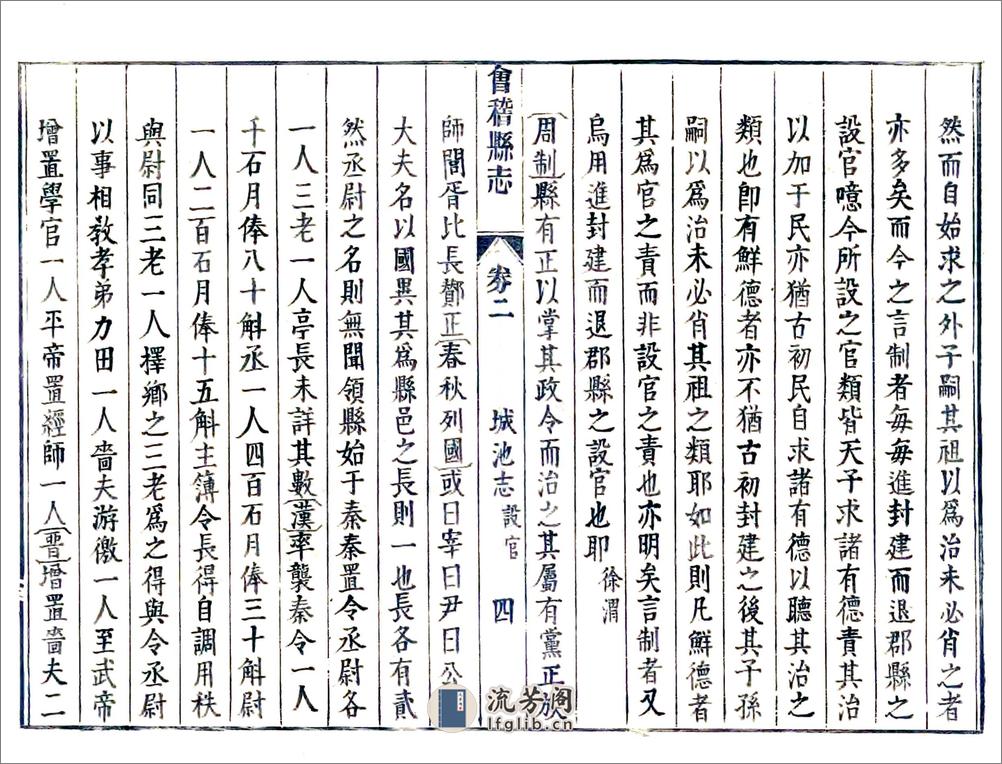 然而自始求之外子嗣其祖以爲治未必肖之者
亦多矣而今之言制者每每進封建而退郡縣之
設官噫今所設之官類皆天子求諸有德責其治
以加于民亦猶古初民自求諸有德以聽其治之
類也卽有鮮德者亦不猶古初封建之後其子孫
嗣以爲治未必肖其祖之類耶如此則凡鮮德者
其爲官之責而非設官之責也亦明矣言制者又
烏用進封建而退郡縣之設官也耶 徐渭
周制縣有正以掌其政令而治之其屬有黨正族
會稽縣志 卷二 城池志 設官 四
師閭胥比長酇正春秋列國或曰宰曰尹曰公
大夫名以國異其爲縣邑之長則一也長各有貳
然丞尉之名則無聞領縣始于秦秦置令丞尉各
一人三老一人亭長未詳其數漢率襲秦令一人
千石月俸八十斛丞一人四百石月俸三十斛尉
一人二百石月俸十五斛主簿令長得自調用秩
與尉同三老一人擇鄉之三老爲之得與令丞尉
以事相教孝弟力田一人嗇夫游徼一人至武帝
增置學官一人平帝置經師一人晋增置嗇夫二
流芳阁
lfglib.cn